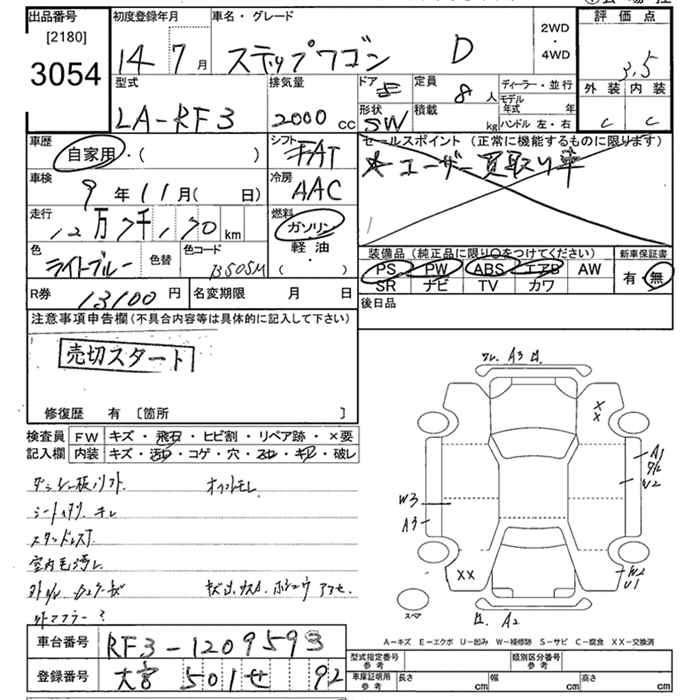 出品番号 初度登録年月 車名・グレード 評価点
[2180]
3054
14 7月 ステップワゴン D 2WD・4WD 3.5
型式 排気量 ドア 5 定員 8人 ディーラー・並行 外装 内装
LA-RF3 2000cc 形状 SW 積載 kg モデル年式 年 ハンドル 左・右 C C
車歴 自家用・( ) シフト FAT セールスポイント (正常に機能するものに限ります)
ユーザー買取り車
車検 9年11月( 日) 冷房 AAC
走行 12万7千170km 燃料 ガソリン・軽油・( )
色 ライトブルー 色替 色コード B505M
装備品 (純正品に限り○をつけてください) 新車保証書
PS PW ABS エアB AW 有・無
SR ナビ TV カワ
R券 13100円 名変期限 月 日 後日品
注意事項申告欄 (不具合内容等は具体的に記入して下さい)
売切スタート
修復歴 有 〔箇所 〕
検査員記入欄 FW キズ・飛石・ヒビ割・リペア跡・×要
内装 キズ・汚れ・コゲ・穴・スレ・キレ・破レ
オイルモレ
A3
XX
A1
U2
W3
A3
XX
W2
U1
スペア
A2
A-キズ E-エクボ U-凹み W-補修跡 S-サビ C-腐食 XX-交換済
車台番号 RF3-1209593
登録番号 大宮 501 せ 92
型式指定番号 参考 類別区分番号 参考
車庫証明用 参考 長さ cm 幅 cm 高さ cm